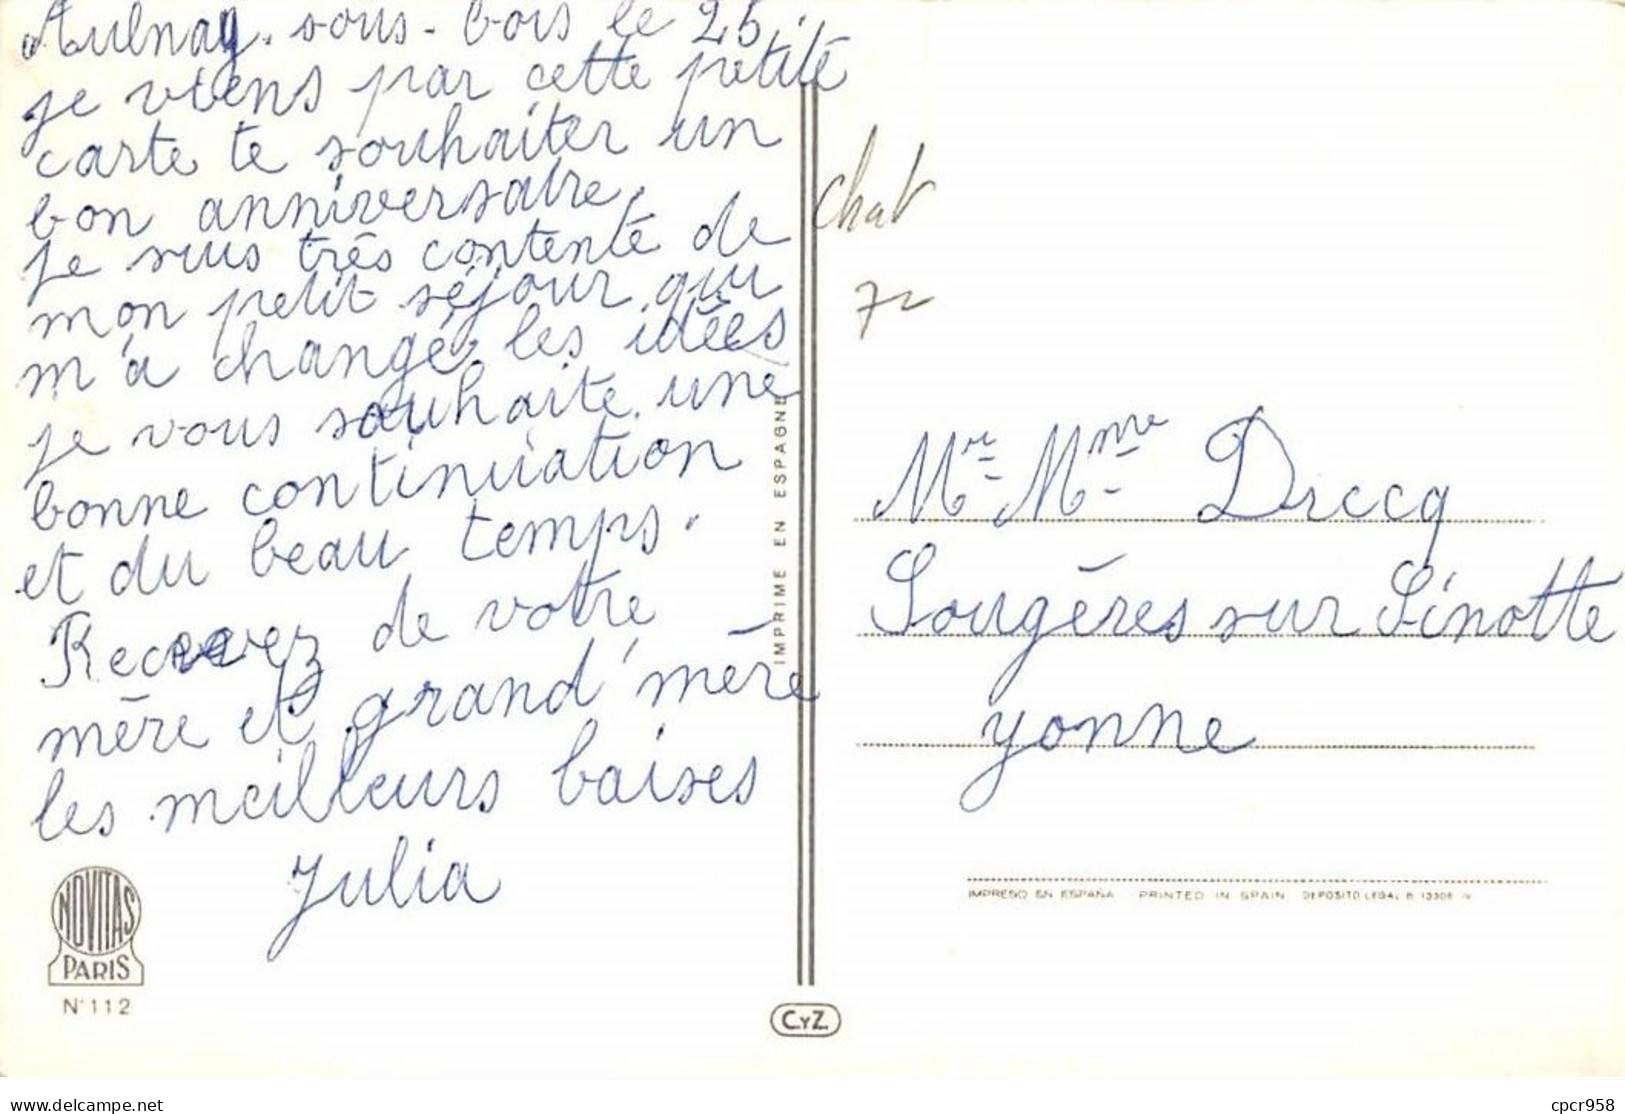 Aulnay. sous. bois le 25.
je viens par cette petite
carte te souhaiter un
bon anniversaire.
je suis très contente de
mon petit séjour qui
m'a changé les idées
je vous souhaite une
bonne continuation
et du beau temps.
Recevez de votre
mère et grand'mère
les meilleurs baises
Julia
NOVITAS
PARIS
N°112
IMPRIME EN ESPAGNE
CYZ
chat
Mr - Mme
Sougères sur Sinotte
yonne
IMPRESO EN ESPAÑA PRINTED IN SPAIN DEPOSITO LEGAL B. 13306
cpcr958